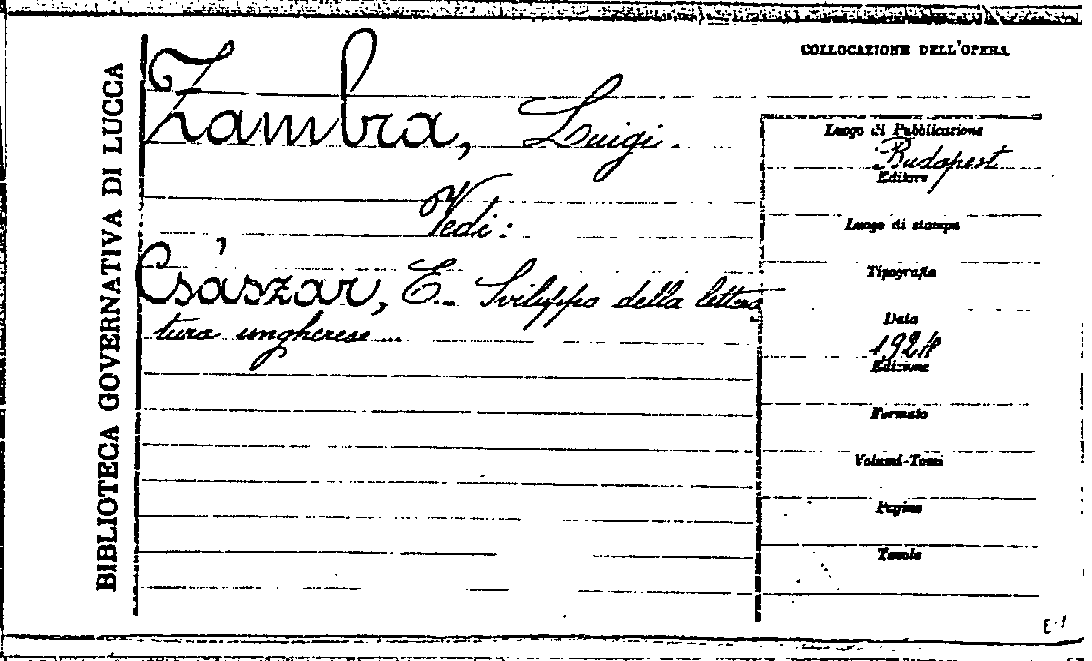 BIBLIOTECA GOVERNATIVA DI LUCCA
COLLOCAZIONE DELL'OPERA
Zambra, Luigi.
Vedi:
Császár, E. Sviluppo della lettera
tura ungherese...
Luogo di Pubblicazione
Budapest
Editore
Luogo di stampa
Tipografia
Data
192
Edizione
Formato
Volumi-Tomi
Pagine
Tavole